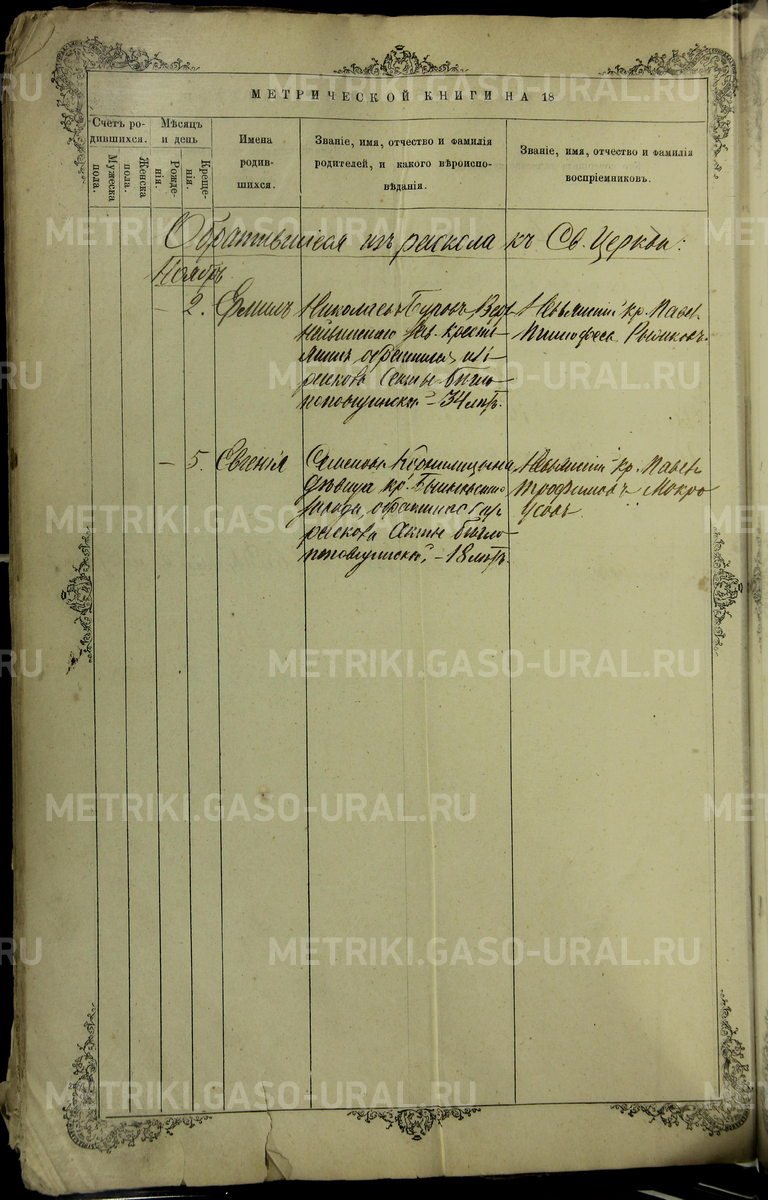 МЕТРИЧЕСКОЙ КНИГИ НА 18
Счетъ ро-
дившихся.
Мужеска
пола.
Женска
пола.
Мѣсяцъ
и день
Рожде-
нія.
Креще-
нія.
Имена
родив-
шихся.
Званіе, имя, отчество и фамилія
родителей, и какого вѣроиспо-
вѣданія.
Званіе, имя, отчество и фамилія
воспріемниковъ.
Обратившіеся изъ раскола къ Св. Церкви:
Ноябрь
– 2. Ермилъ
Николаевъ Буровъ Верх
нейвинскаго зав. кресть-
янинъ, обратился изъ
раскола секты бѣгло-
поповщинской – 34 лѣтъ.
Невьянскій кр. Павел
Тимофеев Рыбаковъ.
– 5. Евгенія
Семенова Кормильцына
дѣвица кр. Быньговскаго
завода, обратилась изъ
раскола секты бѣгло-
поповщинской, – 18 лѣтъ.
Невьянскій кр. Павел
Трофимовъ Мокро
усовъ
METRIKI.GASO-URAL.RU